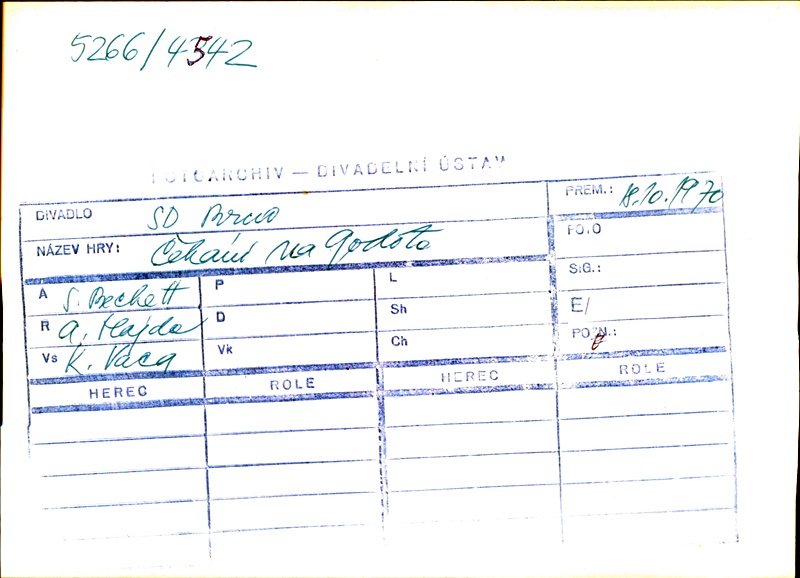 5266/4542
FOTOARCHIV — DIVADELNÍ ÚSTAV
DIVADLO SD Brno
PREM.: 18.10.1970
NÁZEV HRY: Čekání na Godota
FOTO
A S. Beckett
P
L
SIG.:
R A. Hajda
D
Sh
E/
Vs K. Vaca
Vk
Ch
POZN.:
HEREC ROLE HEREC ROLE